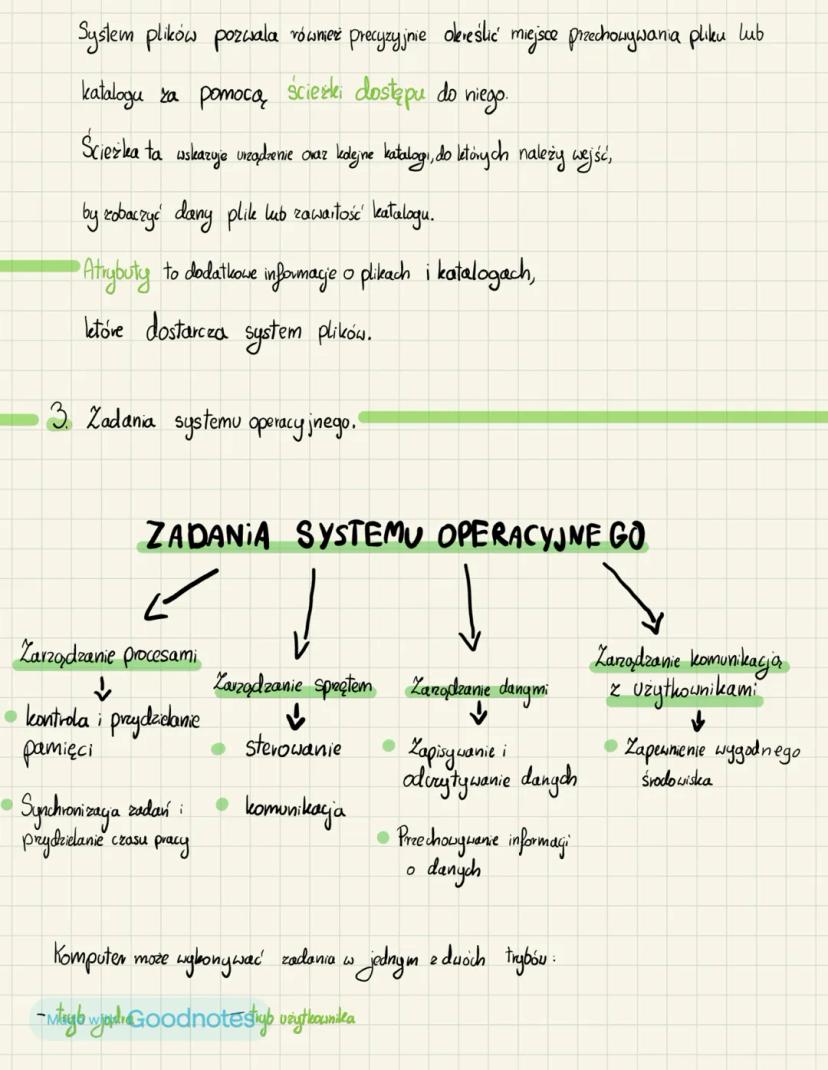 System plików pozwala również precyzyjnie określić miejsce przechowywania pliku lub
katalogu za pomocą ścieżki dostępu do niego.
Ścieżka ta wskazuje urządzenie oraz kolejne katalogi, do których należy wejść,
by zobaczyć dany plik lub zawartość katalogu.
Atrybuty to dodatkowe informacje o plikach i katalogach,
które dostarcza system plików.
3. Zadania systemu operacyjnego.
ZADANIA SYSTEMU OPERACYJNEGO
Zarządzanie procesami
kontrola i przydzielanie
pamięci
Synchronizacja zadań i
przydzielanie czasu pracy
Zarządzanie sprzętem
sterowanie
komunikacja
Zarządzanie danymi
Zapisywanie i
odczytywanie danych
Przechowywanie informacji
o danych
Zarządzanie komunikacją
z użytkownikami
Zapewnienie wygodnego
środowiska
Komputer może wykonywać zadania w jednym z dwóch trybów:
- tryb jądra - tryb użytkownika
Goodnotes